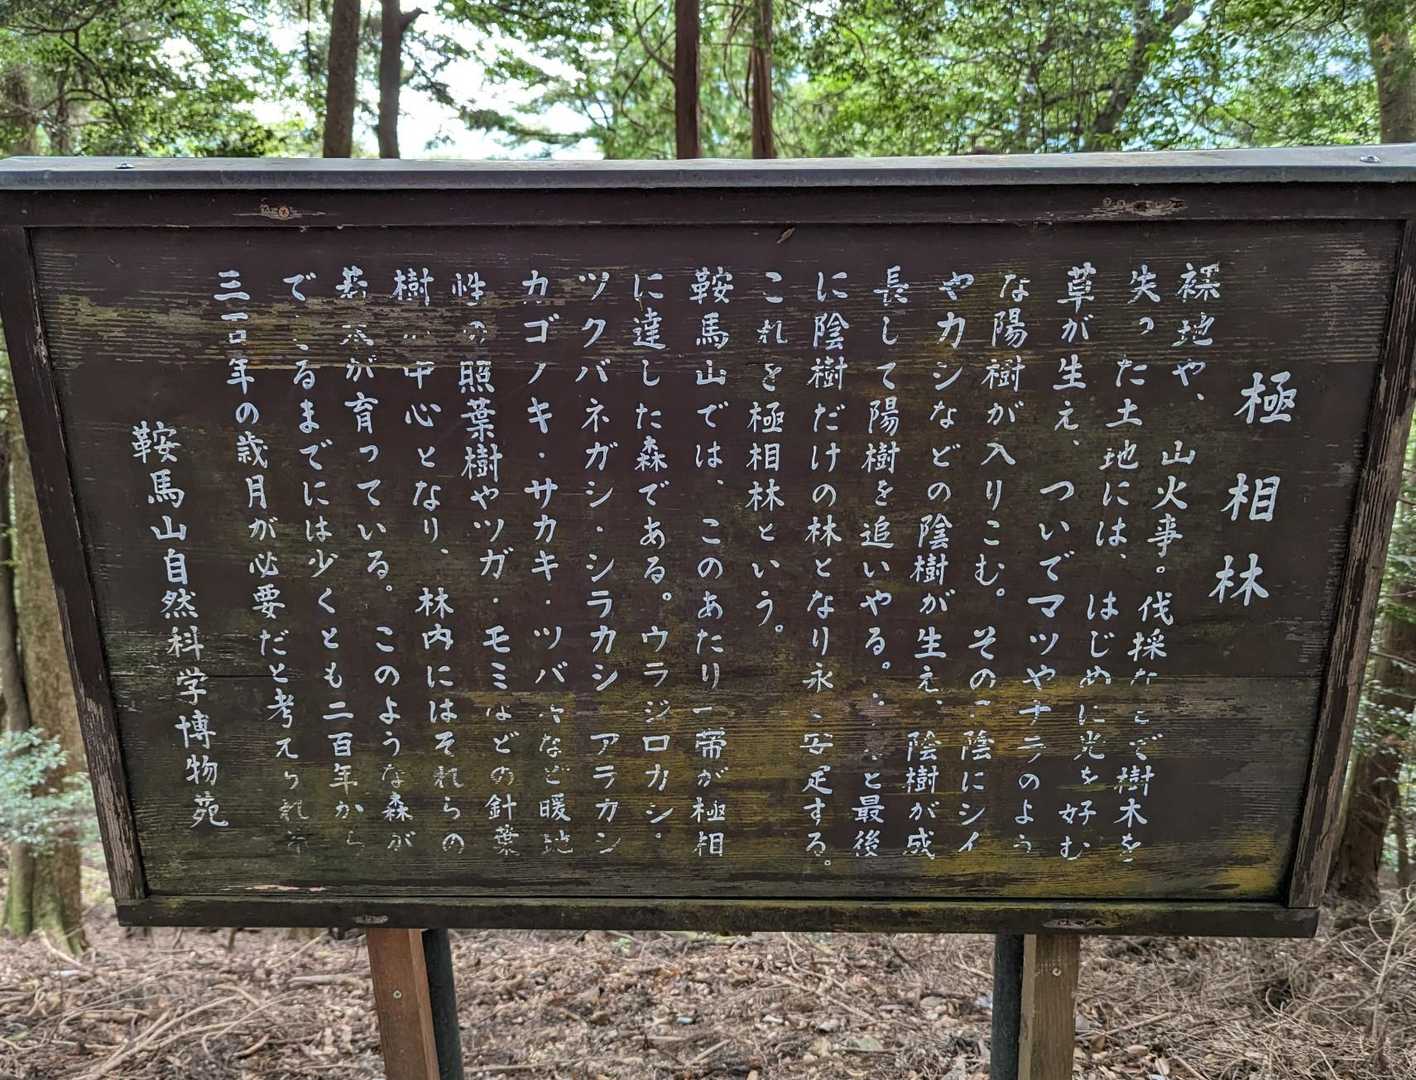 極相林
裸地や、山火事。伐採などで樹木を
失った土地には、はじめに光を好む
草が生え、ついでマツやナラのよう
な陽樹が入りこむ。その陰にシイ
やカシなどの陰樹が生え、陰樹が成
長して陽樹を追いやる。と最後
に陰樹だけの林となり永安定する。
これを極相林という。
鞍馬山では、このあたり一帯が極相
に達した森である。ウラジロガシ・
ツクバネガシ・シラカシ アラカシ
カゴノキ・サカキ・ツバキなど暖地
性の照葉樹やツガ・モミなどの針葉
樹が中心となり、林内にはそれらの
が育っている。このような森が
できるまでには少くとも二百年から
三百年の歳月が必要だと考えられ
鞍馬山自然科学博物苑